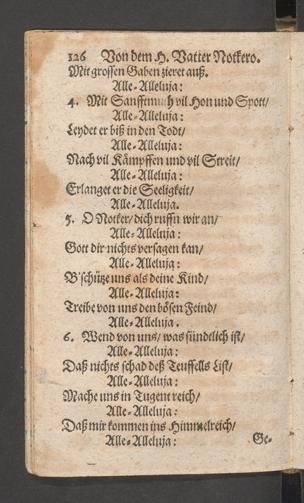 126 Von dem H. Vatter Notkero.
Mit grossen Gaben zieret auß.
Alle-Alleluja:
4. Mit Sanfftmuth vil Hon und Spott/
Alle-Alleluja:
Leydet er biß in den Todt/
Alle-Alleluja:
Nach vil Kämpffen und vil Streit/
Alle-Alleluja:
Erlanget er die Seeligkeit/
Alle-Alleluja.
5. O Notker/ dich ruffn wir an/
Alle-Alleluja:
Gott dir nichts versagen kan/
Alle-Alleluja:
B'schütze uns als deine Kind/
Alle-Alleluja:
Treibe von uns den bösen Feind/
Alle-Alleluja.
6. Wend von uns/ was sündtlich ist/
Alle-Alleluja:
Daß nichts schad deß Teuffells List/
Alle-Alleluja:
Mache uns in Tugent reich/
Alle-Alleluja:
Daß mir kommen ins Himmelreich/
Alle-Alleluja: Ge-